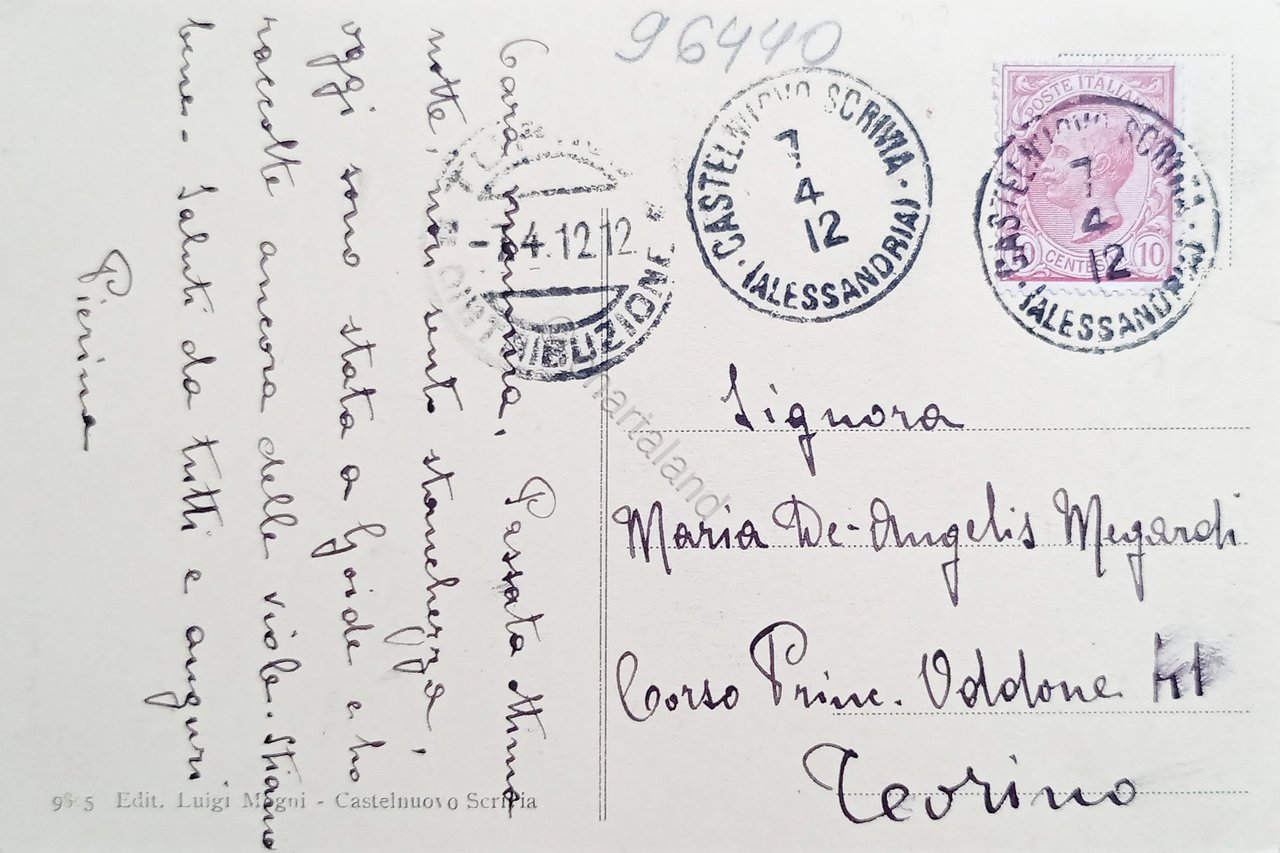 96440
CASTELNUOVO SCRIVIA
7
4
12
(ALESSANDRIA)
POSTE ITALIANE
CENTESIMI 10
CASTELNUOVO SCRIVIA
7
4
12
(ALESSANDRIA)
4.12 12
DISTRIBUZIONE
Cara mamma, Passata ottima
notte, non sento stanchezza,
oggi sono stata a Goide e ho
raccolte ancora delle viole. Stiamo
bene - Saluti da tutti e auguri
Pierina
Signora
Maria De-Angelis Megardi
Corso Princ. Oddone 41
Torino
Edit. Luigi Magni - Castelnuovo Scrivia
Chartaland